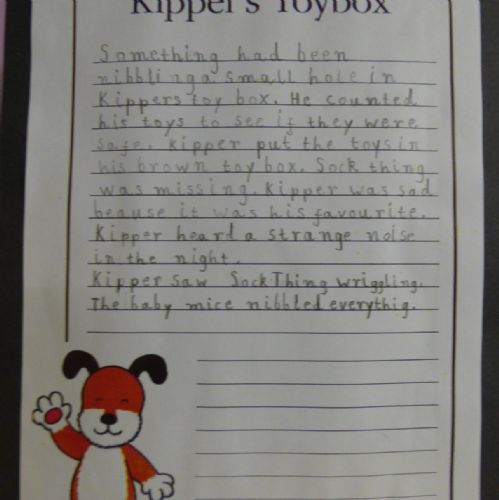 Kipper's Toybox
Something had been
nibbling a small hole in
Kippers toy box. He counted
his toys to see if they were
safe. Kipper put the toys in
his brown toy box. Sock thing
was missing. Kipper was sad
beause it was his favourite.
Kipper heard a strange noise
in the night.
Kipper saw Sock Thing wriggling.
The baby mice nibbled everythig.